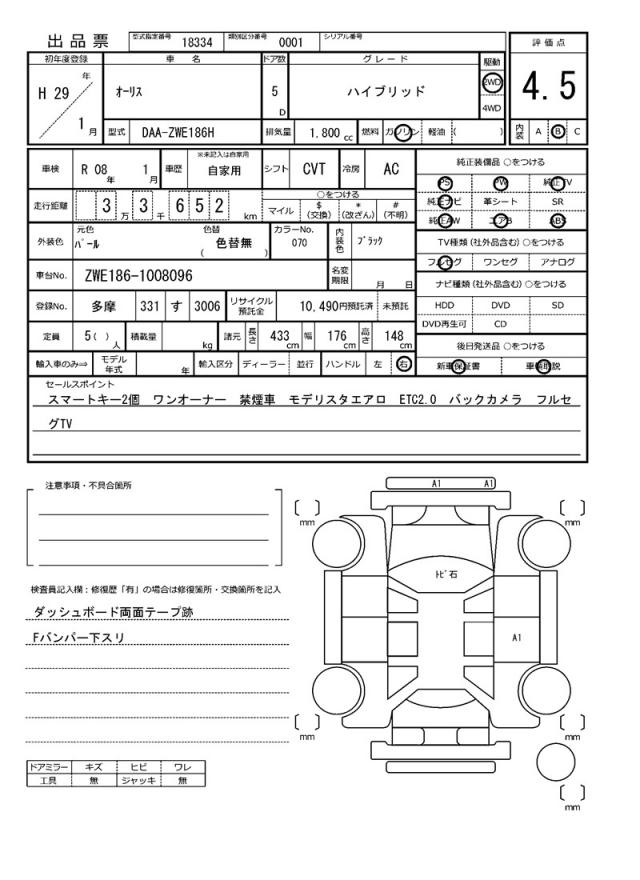 出品票 型式指定番号 18334 類別区分番号 0001 シリアル番号
評価点
4.5
内装 A B C
初年度登録 車名 ドア数 グレード 駆動
H 29 年 1 月 オーリス 5 D ハイブリッド 2WD 4WD
型式 DAA-ZWE186H 排気量 1.800 cc 燃料 ガソリン 軽油 ( )
車検 R 08 年 1 月 車歴 ※未記入は自家用 自家用 シフト CVT 冷房 AC
走行距離 3 万 3 千 6 5 2 km ○をつける
マイル $ (交換) * (改ざん) # (不明)
外装色 元色 パール 色替 色替無 ( ) カラーNo. 070 内装色 ブラック
車台No. ZWE186-1008096 名変期限 月 日
登録No. 多摩 331 す 3006 リサイクル預託金 10,490円預託済 未預託
定員 5( ) 人 積載量 kg 諸元 長さ 433 cm 幅 176 cm 高さ 148 cm
輸入車のみ⇒ モデル年式 年 輸入区分 ディーラー 並行 ハンドル 左 右
純正装備品 ○をつける
PS PW 純正TV
純正ナビ 革シート SR
純正AW エアB ABS
TV種類 (社外品含む) ○をつける
フルセグ ワンセグ アナログ
ナビ種類 (社外品含む) ○をつける
HDD DVD SD
DVD再生可 CD
後日発送品 ○をつける
新車保証書 車輌取説
セールスポイント
スマートキー2個 ワンオーナー 禁煙車 モデリスタエアロ ETC2.0 バックカメラ フルセ
グTV
注意事項・不具合箇所
検査員記入欄：修復歴「有」の場合は修復箇所・交換箇所を記入
ダッシュボード両面テープ跡
Fバンパー下スリ
ドアミラー キズ ヒビ ワレ
工具 無 ジャッキ 無
A1 A1
mm mm
トビ石
A1
mm mm
mm